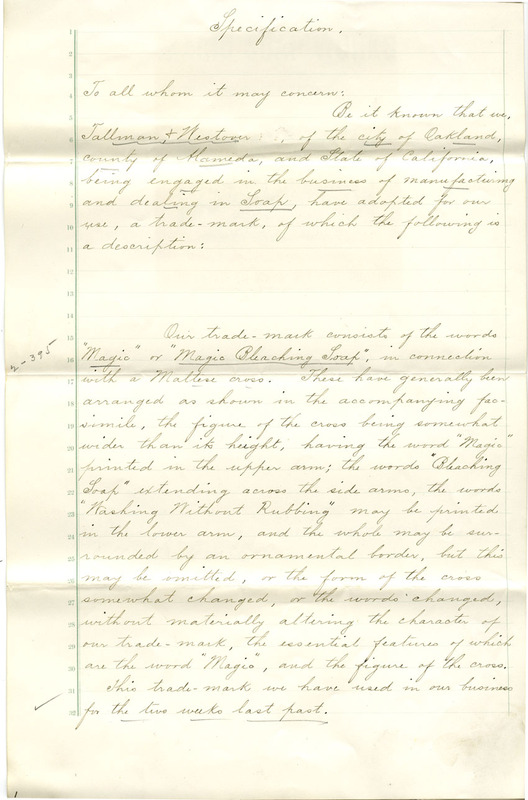 Specification.
To all whom it may concern:
Be it known that we,
Tallman & Westover, of the city of Oakland,
county of Alameda, and State of California,
being engaged in the business of manufacturing
and dealing in Soap, have adopted for our
use, a trade-mark, of which the following is
a description:
Our trade-mark consists of the words
2-395
"Magic" or "Magic Bleaching Soap", in connection
with a Maltese cross. These have generally been
arranged as shown in the accompanying fac-
simile, the figure of the cross being somewhat
wider than its height, having the word "Magic"
printed in the upper arm; the words "Bleaching
Soap" extending across the side arms, the words
"Washing Without Rubbing" may be printed
in the lower arm, and the whole may be sur-
rounded by an ornamental border, but this
may be omitted, or the form of the cross
somewhat changed, or the words changed,
without materially altering the character of
our trade-mark, the essential features of which
are the word "Magic", and the figure of the cross.
This trade-mark we have used in our business
for the two weeks last past.